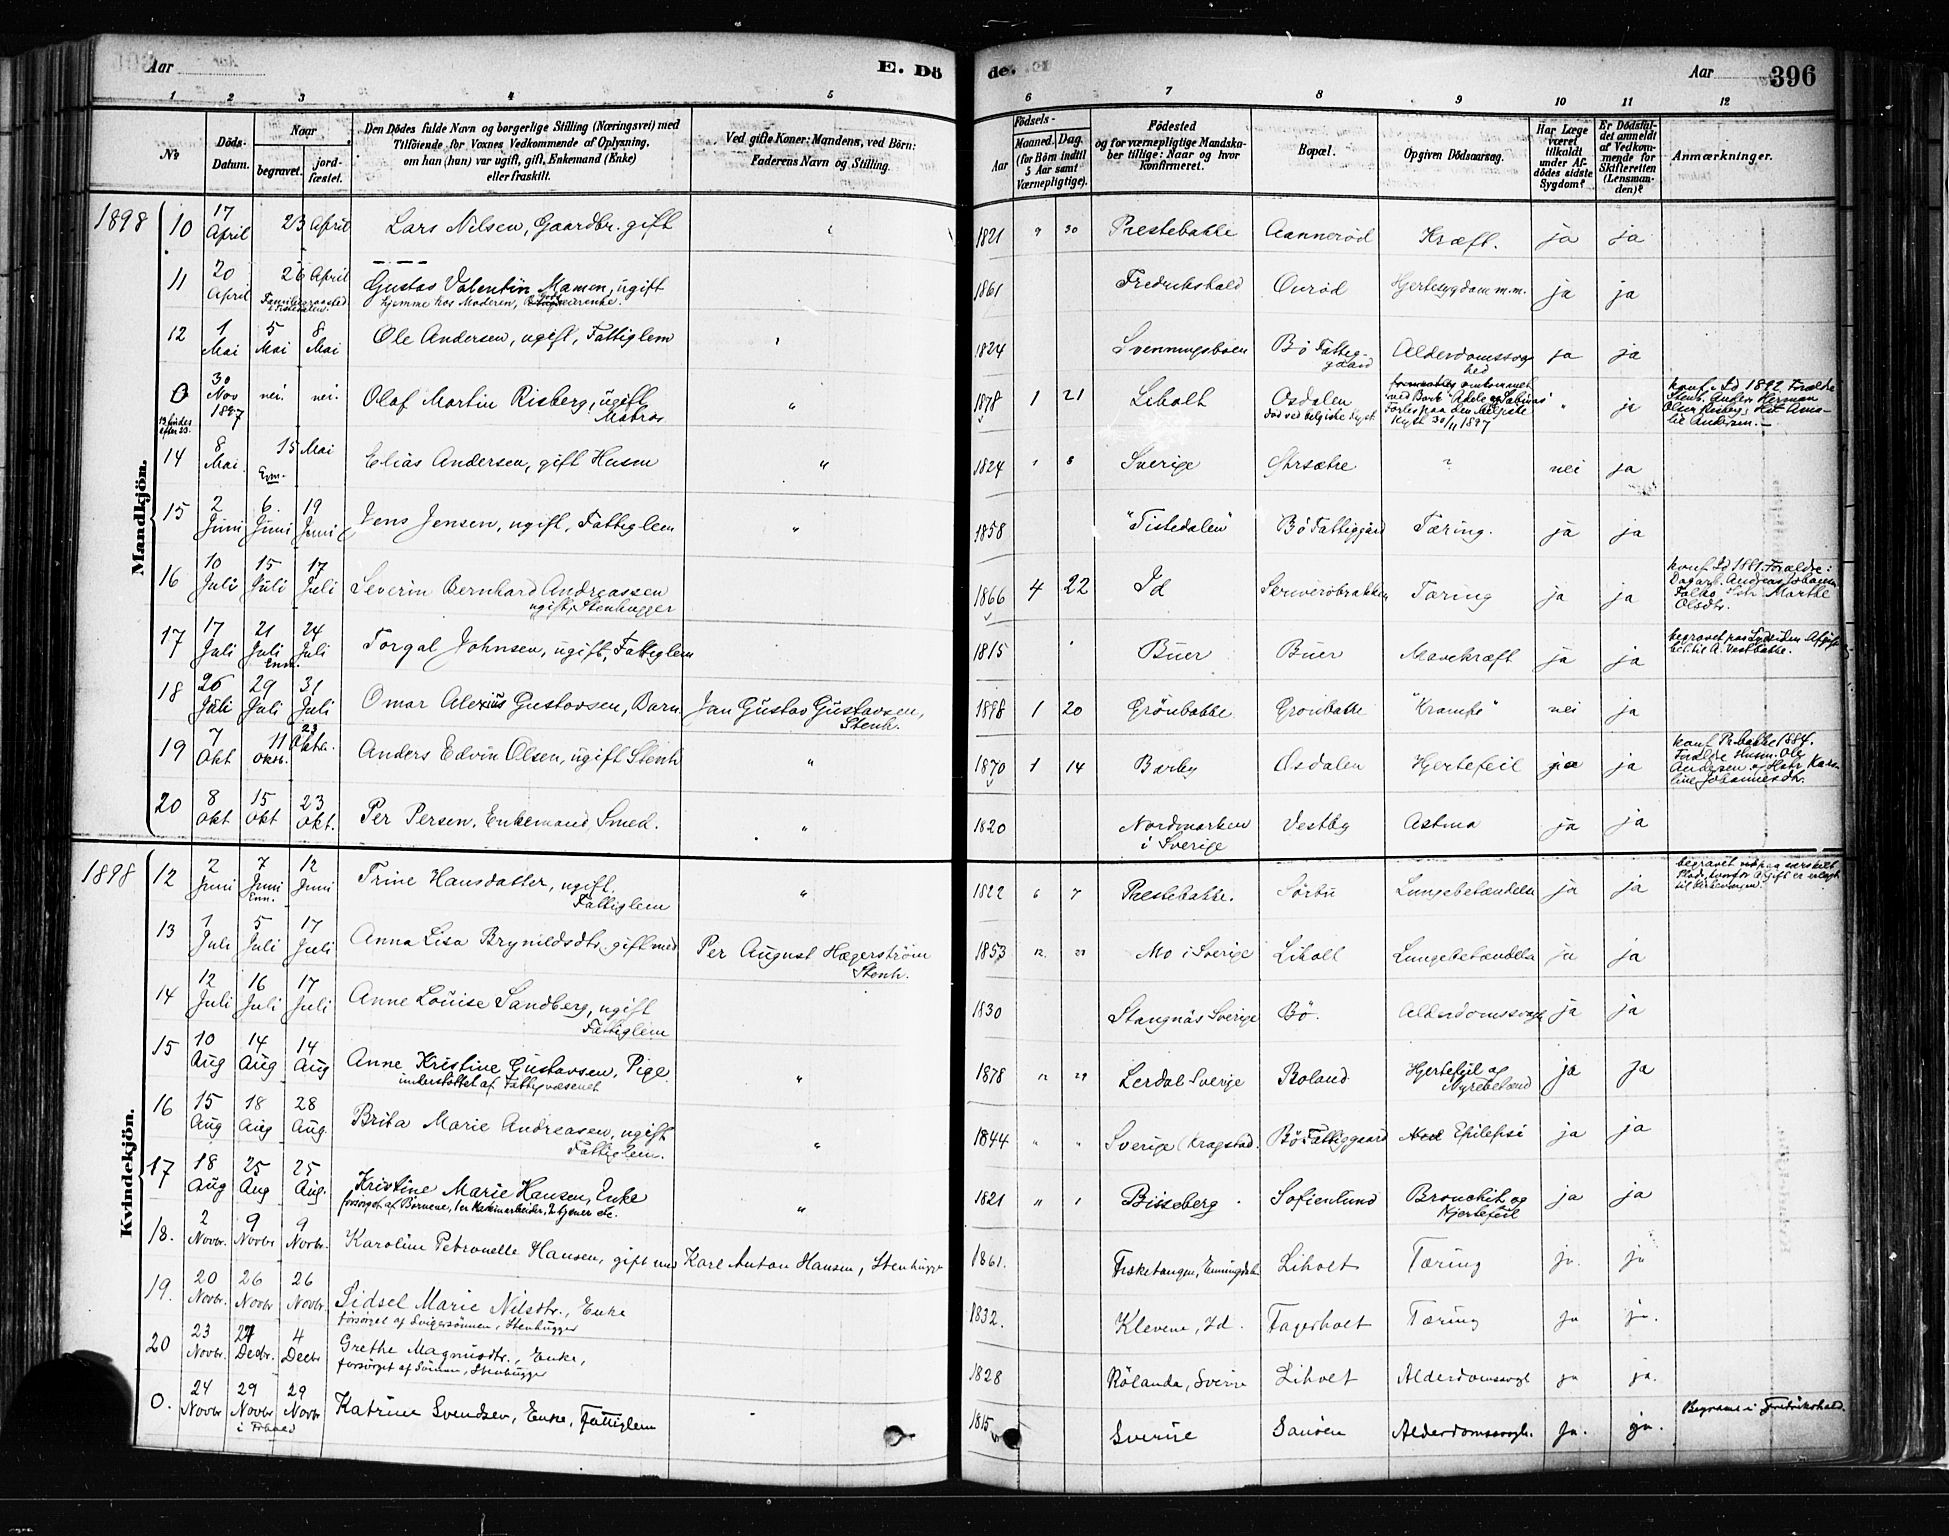 Aar
E. Dö
de.
Aar
396
1 2 3 4 5 6 7 8 9 10 11 12
No
Döds-
Datum.
Naar
begravet.
jord-
fæstet.
Den Dödes fulde Navn og borgerlige Stilling (Næringsvei) med
Tilföiende for Voxnes Vedkommende af Oplysning,
om han (hun) var ugift, gift, Enkemand (Enke)
eller fraskilt.
Ved gifte Koner: Mandens, ved Börn:
Faderens Navn og Stilling.
Födsels-
Aar
Maaned. Dag.
(for Börn indtil
5 Aar samt
Værnepligtige).
Födested
og for værnepligtige Mandska-
ber tillige: Naar og hvor
konfirmeret.
Bopæl.
Opgiven Dödsaarsag.
Har Læge
været
tilkaldt
under Af-
dödes sidste
Sygdom?
Er Dödsfal-
det anmeldt
af Vedkom-
mende for
Skifteretten
(Lensman-
den)?
Anmærkninger.
Mandkjön.
1898 10 17 April 23 April Lars Nilsen, Gaardbr. gift 1821 9 30 Prestebakke Aannerød Kræft. ja ja
11 20 April 26 April Gustav Valentin Mamen, ugift 1861 Fredrikshald Ourød Hjertesygdom m.m. ja ja
hjemme hos Moderen,
12 1 Mai 5 Mai 8 Mai Ole Andersen, ugift, Fattiglem 1824 Svenningsboen Bö Fattig-
gaard Alderdomssvag
hed ja ja
0 30 Nov 1897 nei. nei. Olaf Martin Risberg, ugift
Matros " 1878 1 21 Liholt Osdalen
død ved belgiske Kyst omkommet
med Bark "Adele og Sabinus"
Forlis paa den belgiske
Kyst 30/11 1897 " ja konf. Id 1892. Forældre
Stenh. Anders Herman
Olsen Risberg, Hst. Ama-
lie Andersen.
14 8 Mai 15 Mai
Enn. Elias Andersen, gift Husm " 1824 8 Sverige ? nei ja
15 2 Juni 6. Juni 19 Juni Jens Jensen, ugift, Fattiglem " 1858 "Tistedalen" Bö Fattiggård Tæring. ja ja
16 10 Juli 15 Juli 17 Juli Severin Bernhard Andreassen
ugift, Stenhugger 1866 4 22 Id Skriverøbrakken Tæring ja ja konf Id 1881. Forældre:
Dagarb. Andreas Johannes
Marthe
Olsdtr.
17 17 Juli 21 Juli
Enn. 24 Juli Torgal Johnsen, ugift, Fattiglem 1815 Buer Buer Mavekræft ja ja begravet paa Sydsiden
18 26 Juli 29 Juli 31 Juli Omar Alexius Gustavsen, Barn. Jan Gustav Gustavsen,
Stenh. 1898 1 20 Grönbakke Gronbakke "Krampe" nei ja
19 7 Okt 11 Oktb. 23 Oktbr. Anders Edvin Olsen, ugift Stenh " 1870 1 14 Barby Osdalen Hjertefeil ja ja konf Pr.bakke 1884.
Forældre Husm. Ole
Andersen og Hstr Karo-
line Johannesdtr.
20 8 Okt 15 Okt 23 Okt. Per Persen, Enkemand, Smed. " 1820 Nordmarken
i Sverige Vestby Astma ja ja
Kvindekjön.
1898 12 2 Juni 7 Juni
Enn. 12 Juni Trine Hansdatter, ugift.
Fattiglem " 1822 6 7 Prestebakke. Sørbu Lungebetændelse ja ja begravet paa særskilt
Plads, hvorfor Afgift er erlagt
til Kirkevergen.
13 1 Juli 5 Juli 17 Juli Anna Lisa Brynildsdtr. gift med Per August Hægerström
Stenh. 1853 12 Mo i Sverige Liholt Lungebetændelse ja ja
14 12 Juli 16 Juli 17 Juli Anne Louise Sandberg, ugift
Fattiglem 1830 Stangnäs Sverige Bö. Alderdomssvagh ja ja
15 10 Aug 14 Aug 14 Aug Anne Kristine Gustavsen, Pige.
understøttet af Fattigvæsenet " 1878 12 29 Lerdal Sverige Boland Hjertefeil og
Nyrebetænd ja ja
16 15 Aug 18 Aug 28 Aug. Brita Marie Andreasen, ugift
Fattiglem. " 1844 " " Sverige Bö Fattiggaard Epilepsi ja ja
17 18 Aug 25 Aug 25 Aug. Kristine Marie Hansen, Enke
forsørget af Børnene, 2 tjener etc. " 1821 " Bisseberg Sofienlund Bronchit og
Hjertefeil ja ja
18. 2 Novbr. 9 Novbr 9 Novbr. Karoline Petronelle Hansen, gift med Karl Anton Hansen, Stenhugger 1861. Fisketangen, Enningdalen Liholt Tæring ja. ja
19. 20 Novbr. 26 Novbr 26 Novbr. Sidsel Marie Nilsdtr., Enke
forsørget af Svigersønnen, Stenhugger 1832. Klevene, Id. Fagerholt Tæring ja ja.
20 23 Novbr. Decbr. 4 Decbr Grethe Magnusdtr., Enke,
forsørget af Sønnen, Stenhugger 1828 Rölanda, Sverige Liholt Alderdomssvagh ja ja.
0. 24 Novbr 29 Novbr
i Frhald 29 Novbr Katrine Svendsen, Enke, Fattiglem 1815 Sverige Sanöen Alderdomssvagh. ja. ja. Begravet i Fredrikshald.